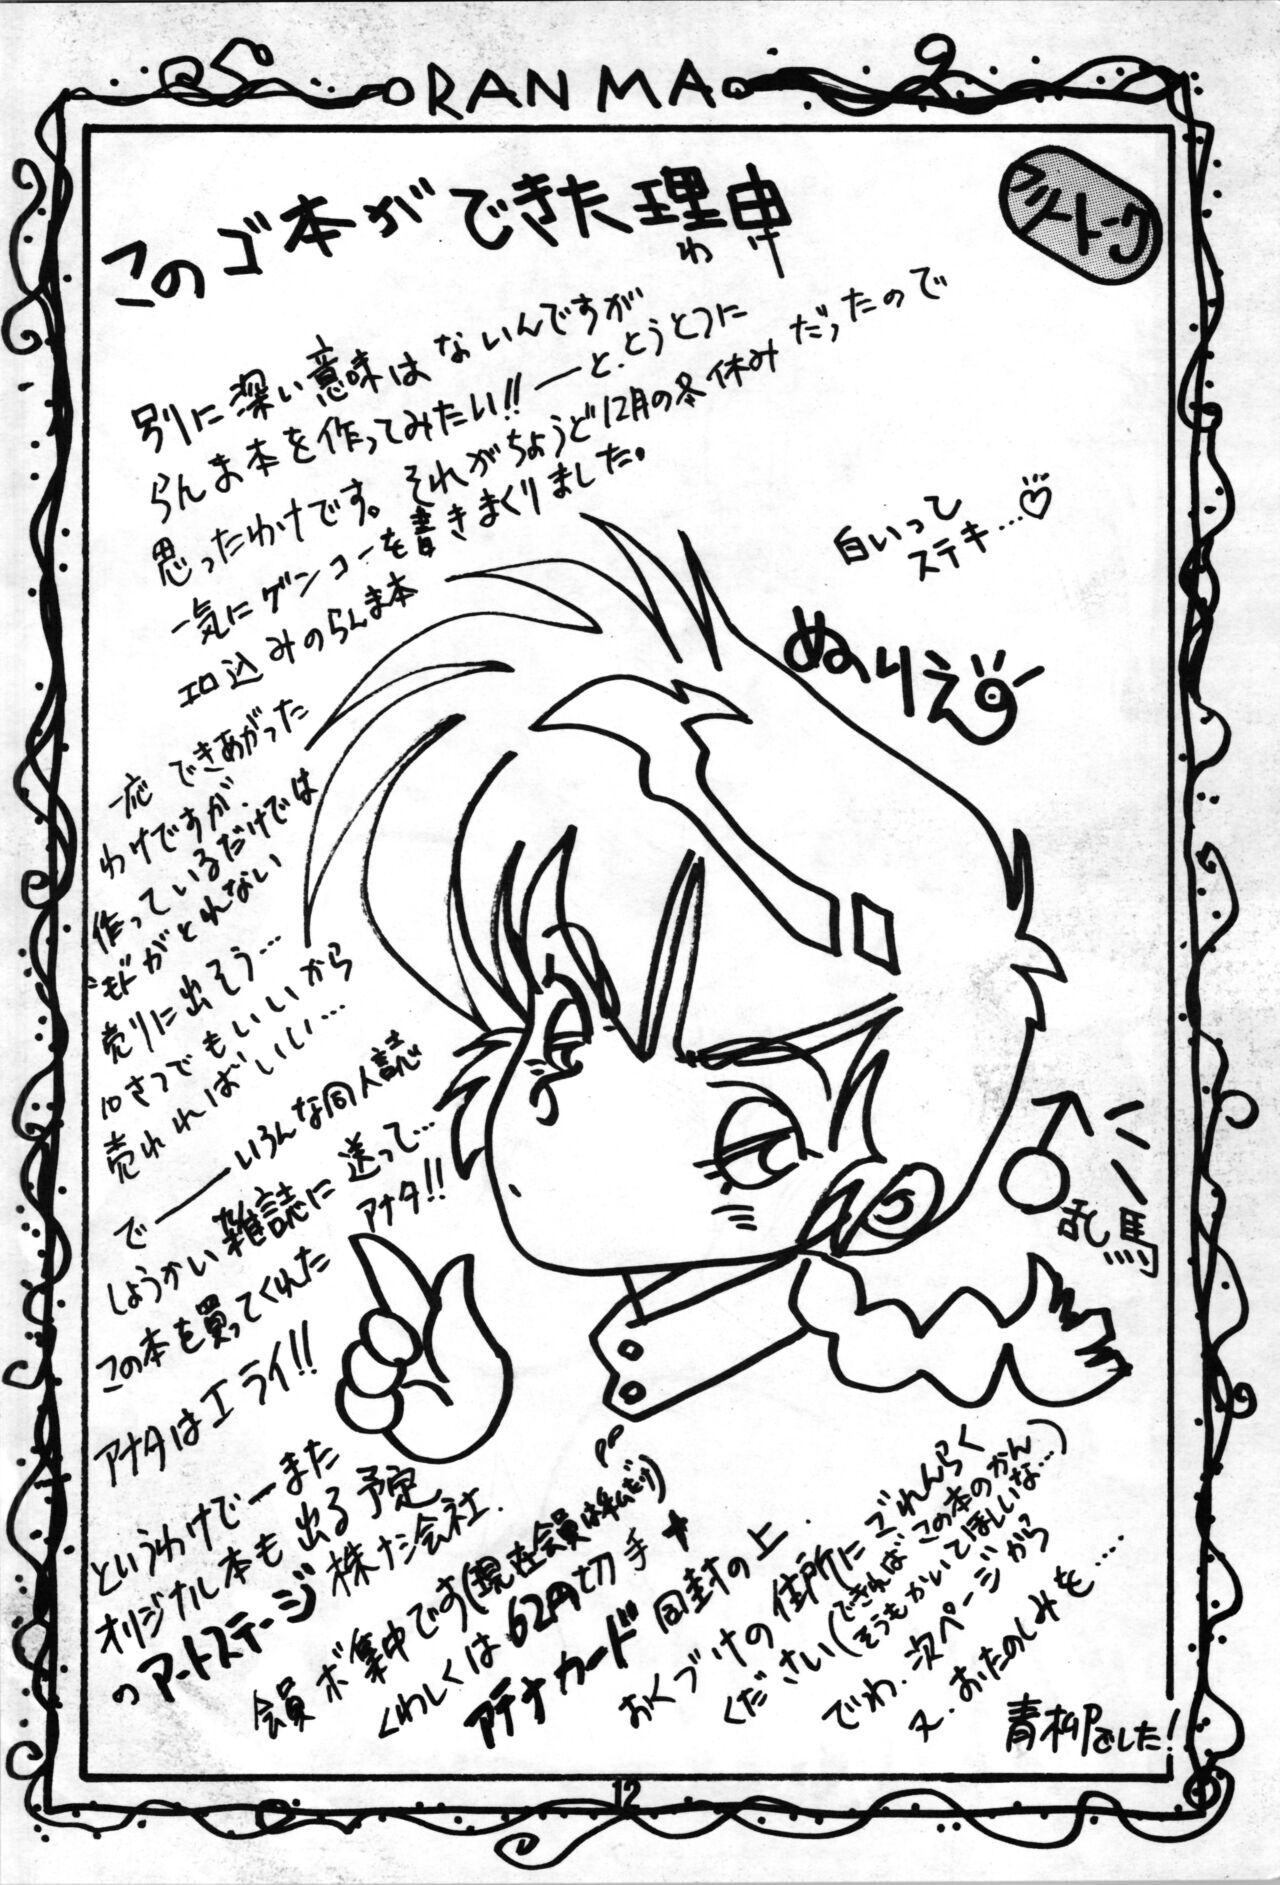 RANMA
フリートーク
このゴ本ができた理由
わけ
別に深い意味はないんですが
らんま本を作ってみたい!!ーと、とうとつに
思ったわけです。それがちょうど12月の冬休みだったので
一気にゲンコーを書きまくりました。
エロ込みのらんま本
一応できあがった
わけですが、
作っているだけでは
モトがとれない
売りに出そう…
10さつでもいいから
売れればいい…
でーーいろんな同人誌
しょうかい雑誌に送って…
この本を買ってくれた
アナタ!!
アナタはエライ!!
というわけでーまた
オリジナル本も出る予定
のアートステージ株たか会社.
会員ボ集中です(現在会員は私だけ)
くわしくは62円切手+
アテナカード同封の上.
おくづけの住所にごれんらく
ください(できればこの本のかん
そうもかいてほしいな…)
でわ.次ページから
又.おたのしみを……
青柳でした!
白いって
ステキ…♡
ぬりえ
♂
乱馬
12